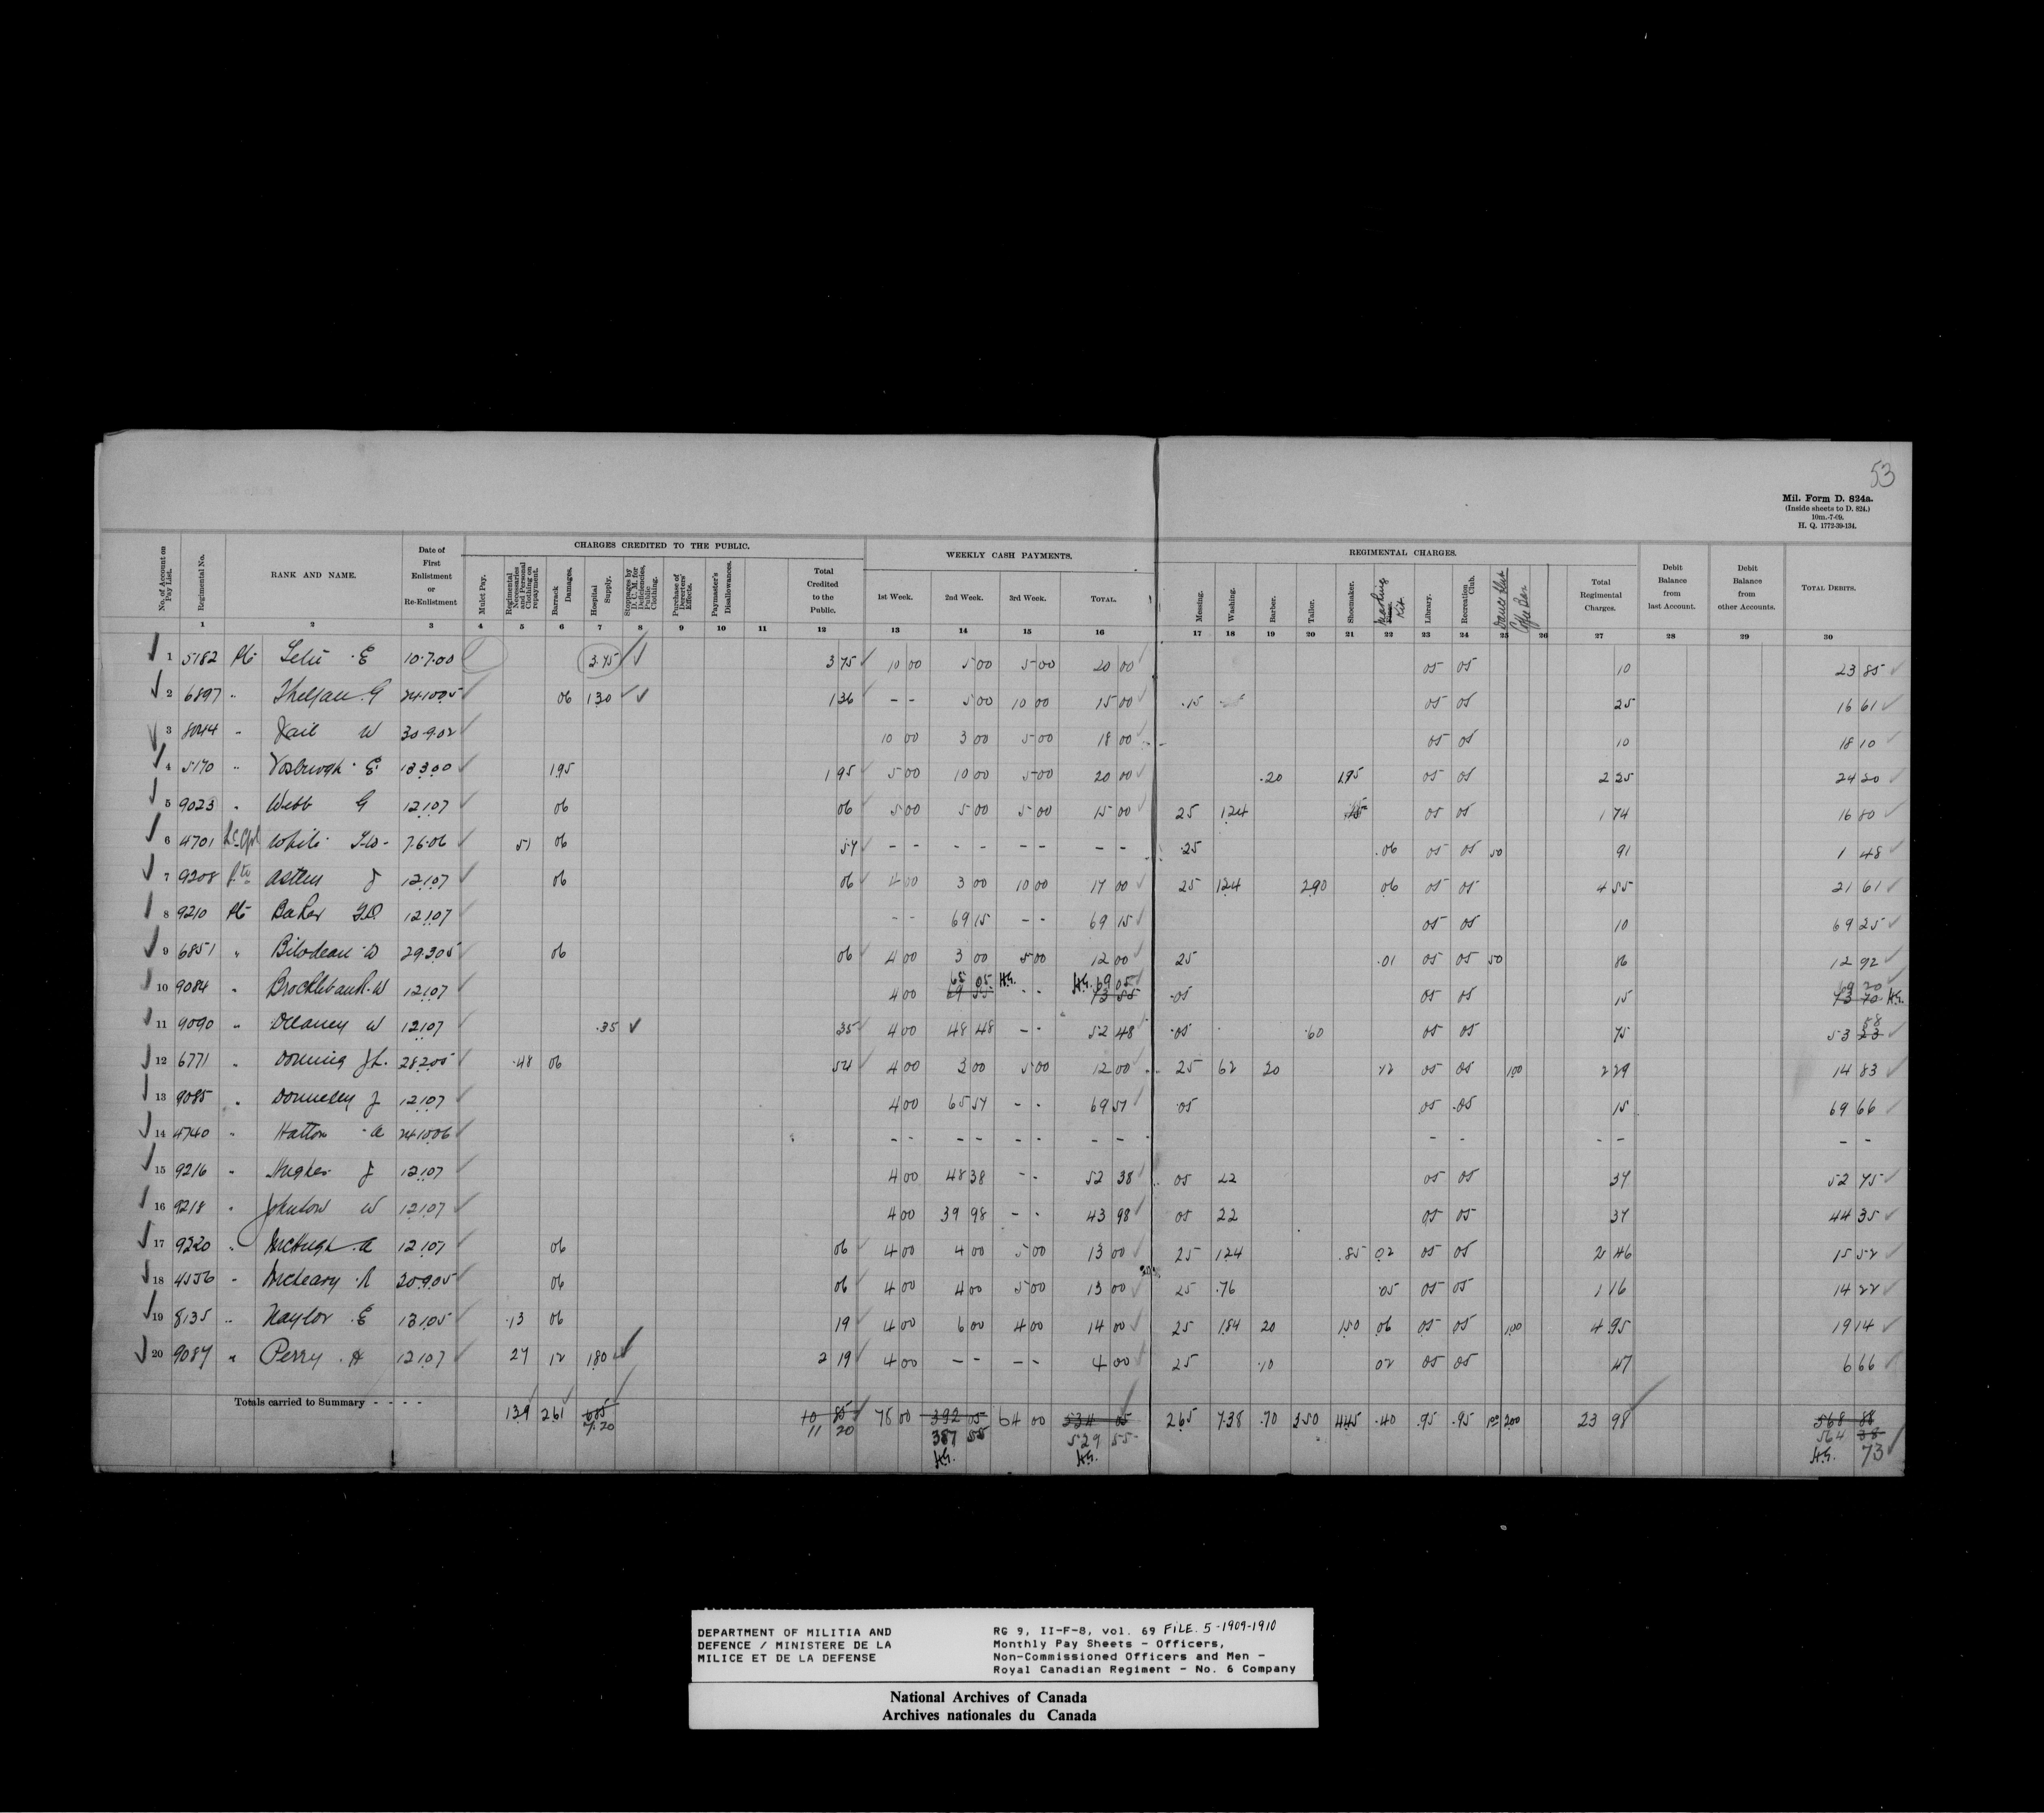 53
Mil. Form D. 824a.
(Inside sheets to D. 824.)
10m.-7-09.
H. Q. 1772-39-134.
CHARGES CREDITED TO THE PUBLIC. WEEKLY CASH PAYMENTS. REGIMENTAL CHARGES.
No. of Account on Pay List. Regimental No. RANK AND NAME. Date of First Enlistment or Re-Enlistment Mulct Pay. Regimental Necessaries and Personal Clothing on repayment. Barrack Damages. Hospital Supply. Stoppages by D. C. M. for Deficiencies, Public Clothing. Purchase of Deserters' Effects. Paymaster's Disallowances. Total Credited to the Public. 1st Week. 2nd Week. 3rd Week. TOTAL. Messing. Washing. Barber. Tailor. Shoemaker. Marking Kit Library. Recreation Club. Total Regimental Charges. Debit Balance from last Account. Debit Balance from other Accounts. TOTAL DEBITS.
1 2 3 4 5 6 7 8 9 10 11 12 13 14 15 16 17 18 19 20 21 22 23 24 25 26 27 28 29 30
1 5182 Pte E 10.7.00 3.75 3 75 10 00 5 00 5 00 20 00 05 05 10 23 85
2 6897 " G 24.10.05 06 1.30 1 36 - - 5 00 10 00 15 00 .15 05 05 25 16 61
3 8044 " W 30.9.02 10 00 3 00 5 00 18 00 05 05 10 18 10
4 5170 " Vosburgh E 13.3.00 1.95 1 95 5 00 10 00 5 00 20 00 .20 1.95 05 05 2 25 24 20
5 9023 " Webb G 12.1.07 06 06 5 00 5 00 5 00 15 00 25 1.24 .15 05 05 1 74 16 80
6 4701 Lc Cpl White 7.6.06 51 06 57 - - - - - - - - .25 .06 05 05 50 91 1 48
7 9208 Pte J 12.1.07 06 06 4 00 3 00 10 00 17 00 25 1.24 2.90 06 05 05 4 55 21 61
8 9210 Pte Baker 12.1.07 - - 69 15 - - 69 15 05 05 10 69 25
9 6851 " Bilodeau W 29.3.05 06 06 4 00 3 00 5 00 12 00 25 .01 05 05 50 86 12 92
10 9084 " Brocklebank W 12.1.07 4 00 65 05 - - 69 05 73 55 .05 05 05 15 69 20 73 70
11 9090 " Delaney W 12.1.07 .35 35 4 00 48 48 - - 52 48 .05 .60 05 05 75 53 58 23
12 6771 " 28.2.05 .48 06 54 4 00 3 00 5 00 12 00 25 62 20 12 05 05 1.00 2 29 14 83
13 9085 " Donnelly J 12.1.07 4 00 65 51 - - 69 51 .05 05 .05 15 69 66
14 4740 " Hatton A 24.10.06 - - - - - - - - - - - - - -
15 9216 " Hughes J 12.1.07 4 00 48 38 - - 52 38 05 22 05 05 37 52 75
16 9218 " W 12.1.07 4 00 39 98 - - 43 98 05 22 05 05 37 44 35
17 9220 " McHugh A 12.1.07 06 06 4 00 4 00 5 00 13 00 25 1.24 .85 02 05 05 2 46 15 52
18 4556 " McCleary R 20.9.05 06 06 4 00 4 00 5 00 13 00 25 .76 05 05 05 1 16 14 22
19 8135 " Naylor E 13.1.05 .13 06 19 4 00 6 00 4 00 14 00 25 1.84 20 1.50 06 05 05 1.00 4 95 19 14
20 9087 " Perry H 12.1.07 27 12 1.80 2 19 4 00 - - - - 4 00 25 .10 02 05 05 47 6 66
Totals carried to Summary - - - - 1.39 2.61 6.85 10 85 78 00 392 05 64 00 534 05 2.65 7.38 .70 3.50 4.45 .40 .95 .95 1.00 2.00 23 98 568 88
7.20 11 20 387 55 529 55 564 38
73
DEPARTMENT OF MILITIA AND
DEFENCE / MINISTERE DE LA
MILICE ET DE LA DEFENSE
RG 9, II-F-8, vol. 69 FILE. 5-1909-1910
Monthly Pay Sheets - Officers,
Non-Commissioned Officers and Men -
Royal Canadian Regiment - No. 6 Company
National Archives of Canada
Archives nationales du Canada